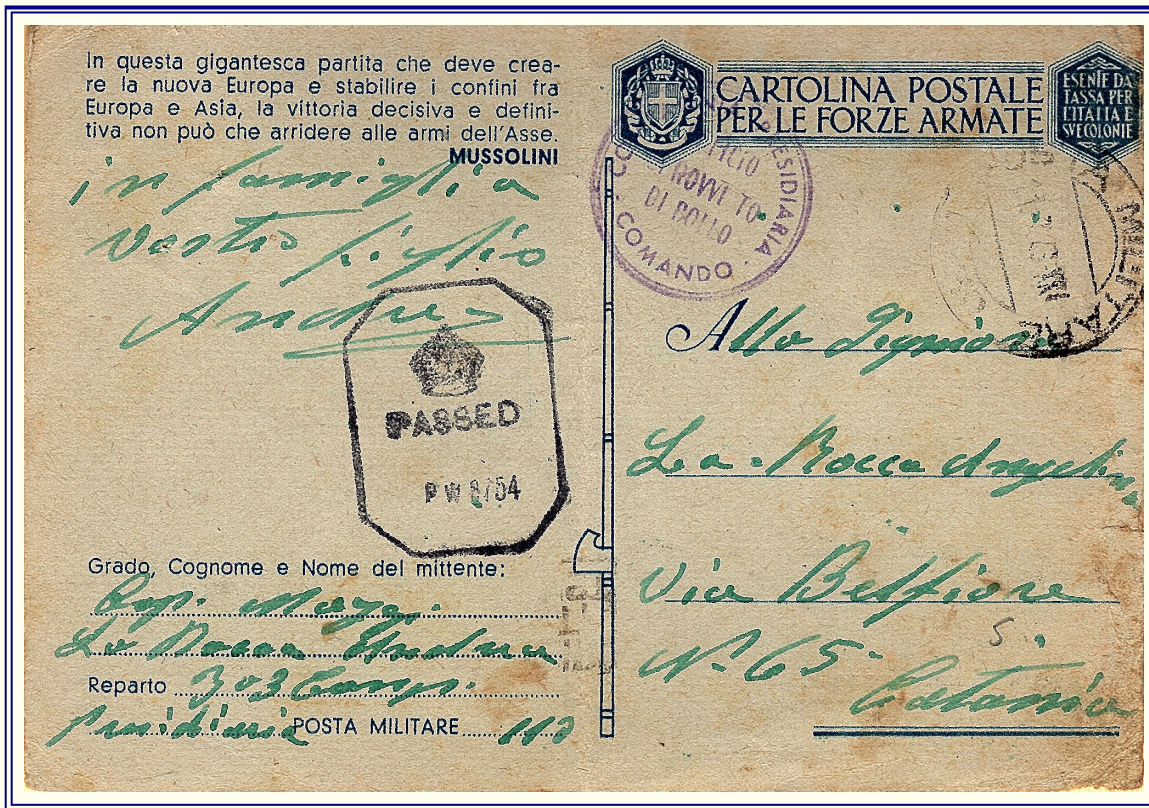 In questa gigantesca partita che deve crea-
re la nuova Europa e stabilire i confini fra
Europa e Asia, la vittoria decisiva e defini-
tiva non può che arridere alle armi dell'Asse.
MUSSOLINI
in famiglia
vostro figlio
Andrea
PASSED
P W
Grado, Cognome e Nome del mittente:
Cap. Magg.
La Rocca Andrea
Reparto 303 Comp.
Presidiaria POSTA MILITARE
CARTOLINA POSTALE
PER LE FORZE ARMATE
ESENTE DA
TASSA PER
L'ITALIA E
SVE COLONIE
DI BOLLO
COMANDO
MILITARE
Alla Signora
La Rocca Angelina
Via Belfiore
N° 65
5
Catania